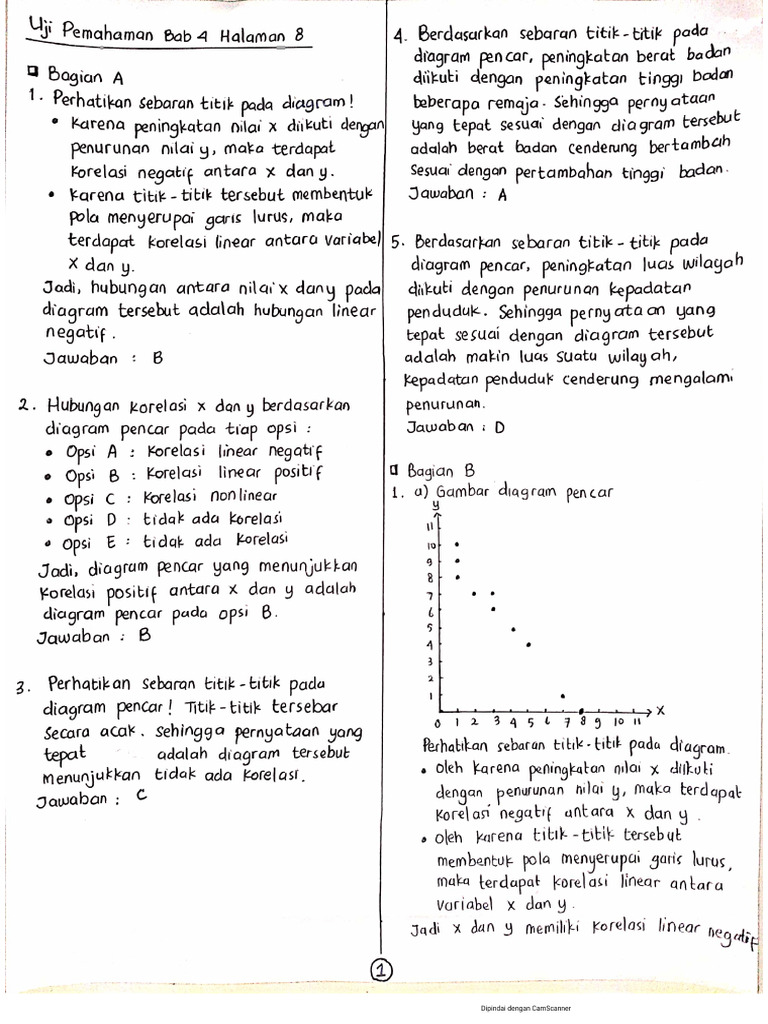 Uji Pemahaman Bab 4 Halaman 8
Bagian A
1. Perhatikan sebaran titik pada diagram!
• Karena peningkatan nilai x diikuti dengan
penurunan nilai y, maka terdapat
korelasi negatif antara x dan y.
• Karena titik-titik tersebut membentuk
pola menyerupai garis lurus, maka
terdapat korelasi linear antara variabel
x dan y.
Jadi, hubungan antara nilai x dan y pada
diagram tersebut adalah hubungan linear
negatif.
Jawaban : B
2. Hubungan korelasi x dan y berdasarkan
diagram pencar pada tiap opsi :
• Opsi A : Korelasi linear negatif
• Opsi B : Korelasi linear positif
• Opsi C : Korelasi nonlinear
• Opsi D : tidak ada korelasi
• Opsi E : tidak ada korelasi
Jadi, diagram pencar yang menunjukkan
korelasi positif antara x dan y adalah
diagram pencar pada opsi B.
Jawaban : B
3. Perhatikan sebaran titik-titik pada
diagram pencar! Titik-titik tersebar
secara acak. Sehingga pernyataan yang
tepat adalah diagram tersebut
menunjukkan tidak ada korelasi.
Jawaban : C
4. Berdasarkan sebaran titik-titik pada
diagram pencar, peningkatan berat badan
diikuti dengan peningkatan tinggi badan
beberapa remaja. Sehingga pernyataan
yang tepat sesuai dengan diagram tersebut
adalah berat badan cenderung bertambah
sesuai dengan pertambahan tinggi badan.
Jawaban : A
5. Berdasarkan sebaran titik-titik pada
diagram pencar, peningkatan luas wilayah
diikuti dengan penurunan kepadatan
penduduk. Sehingga pernyataan yang
tepat sesuai dengan diagram tersebut
adalah makin luas suatu wilayah,
kepadatan penduduk cenderung mengalami
penurunan.
Jawaban : D
Bagian B
1. a) Gambar diagram pencar
y
11
10
9
8
7
6
5
4
3
2
1
0 1 2 3 4 5 6 7 8 9 10 11 x
Perhatikan sebaran titik-titik pada diagram.
• Oleh karena peningkatan nilai x diikuti
dengan penurunan nilai y, maka terdapat
korelasi negatif antara x dan y.
• Oleh karena titik-titik tersebut
membentuk pola menyerupai garis lurus,
maka terdapat korelasi linear antara
variabel x dan y.
Jadi x dan y memiliki korelasi linear negatif
1
Dipindai dengan CamScanner